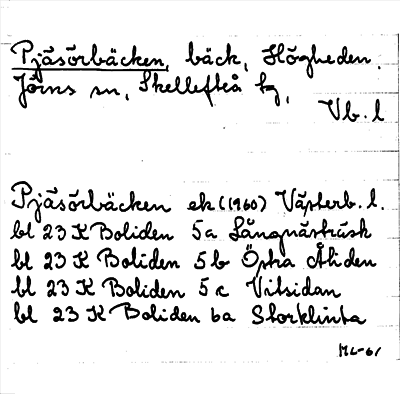 Pjäsörbäcken, bäck, Högheden,
Jörns sn, Skellefteå kg,
Vb. l
Pjäsörbäcken ek (1960) Västerb. l.
bl 23 K Boliden 5a Långnästräsk
bl 23 K Boliden 5b Östra Åliden
bl 23 K Boliden 5c Vitsidan
bl 23 K Boliden 6a Storklinta
ML-61